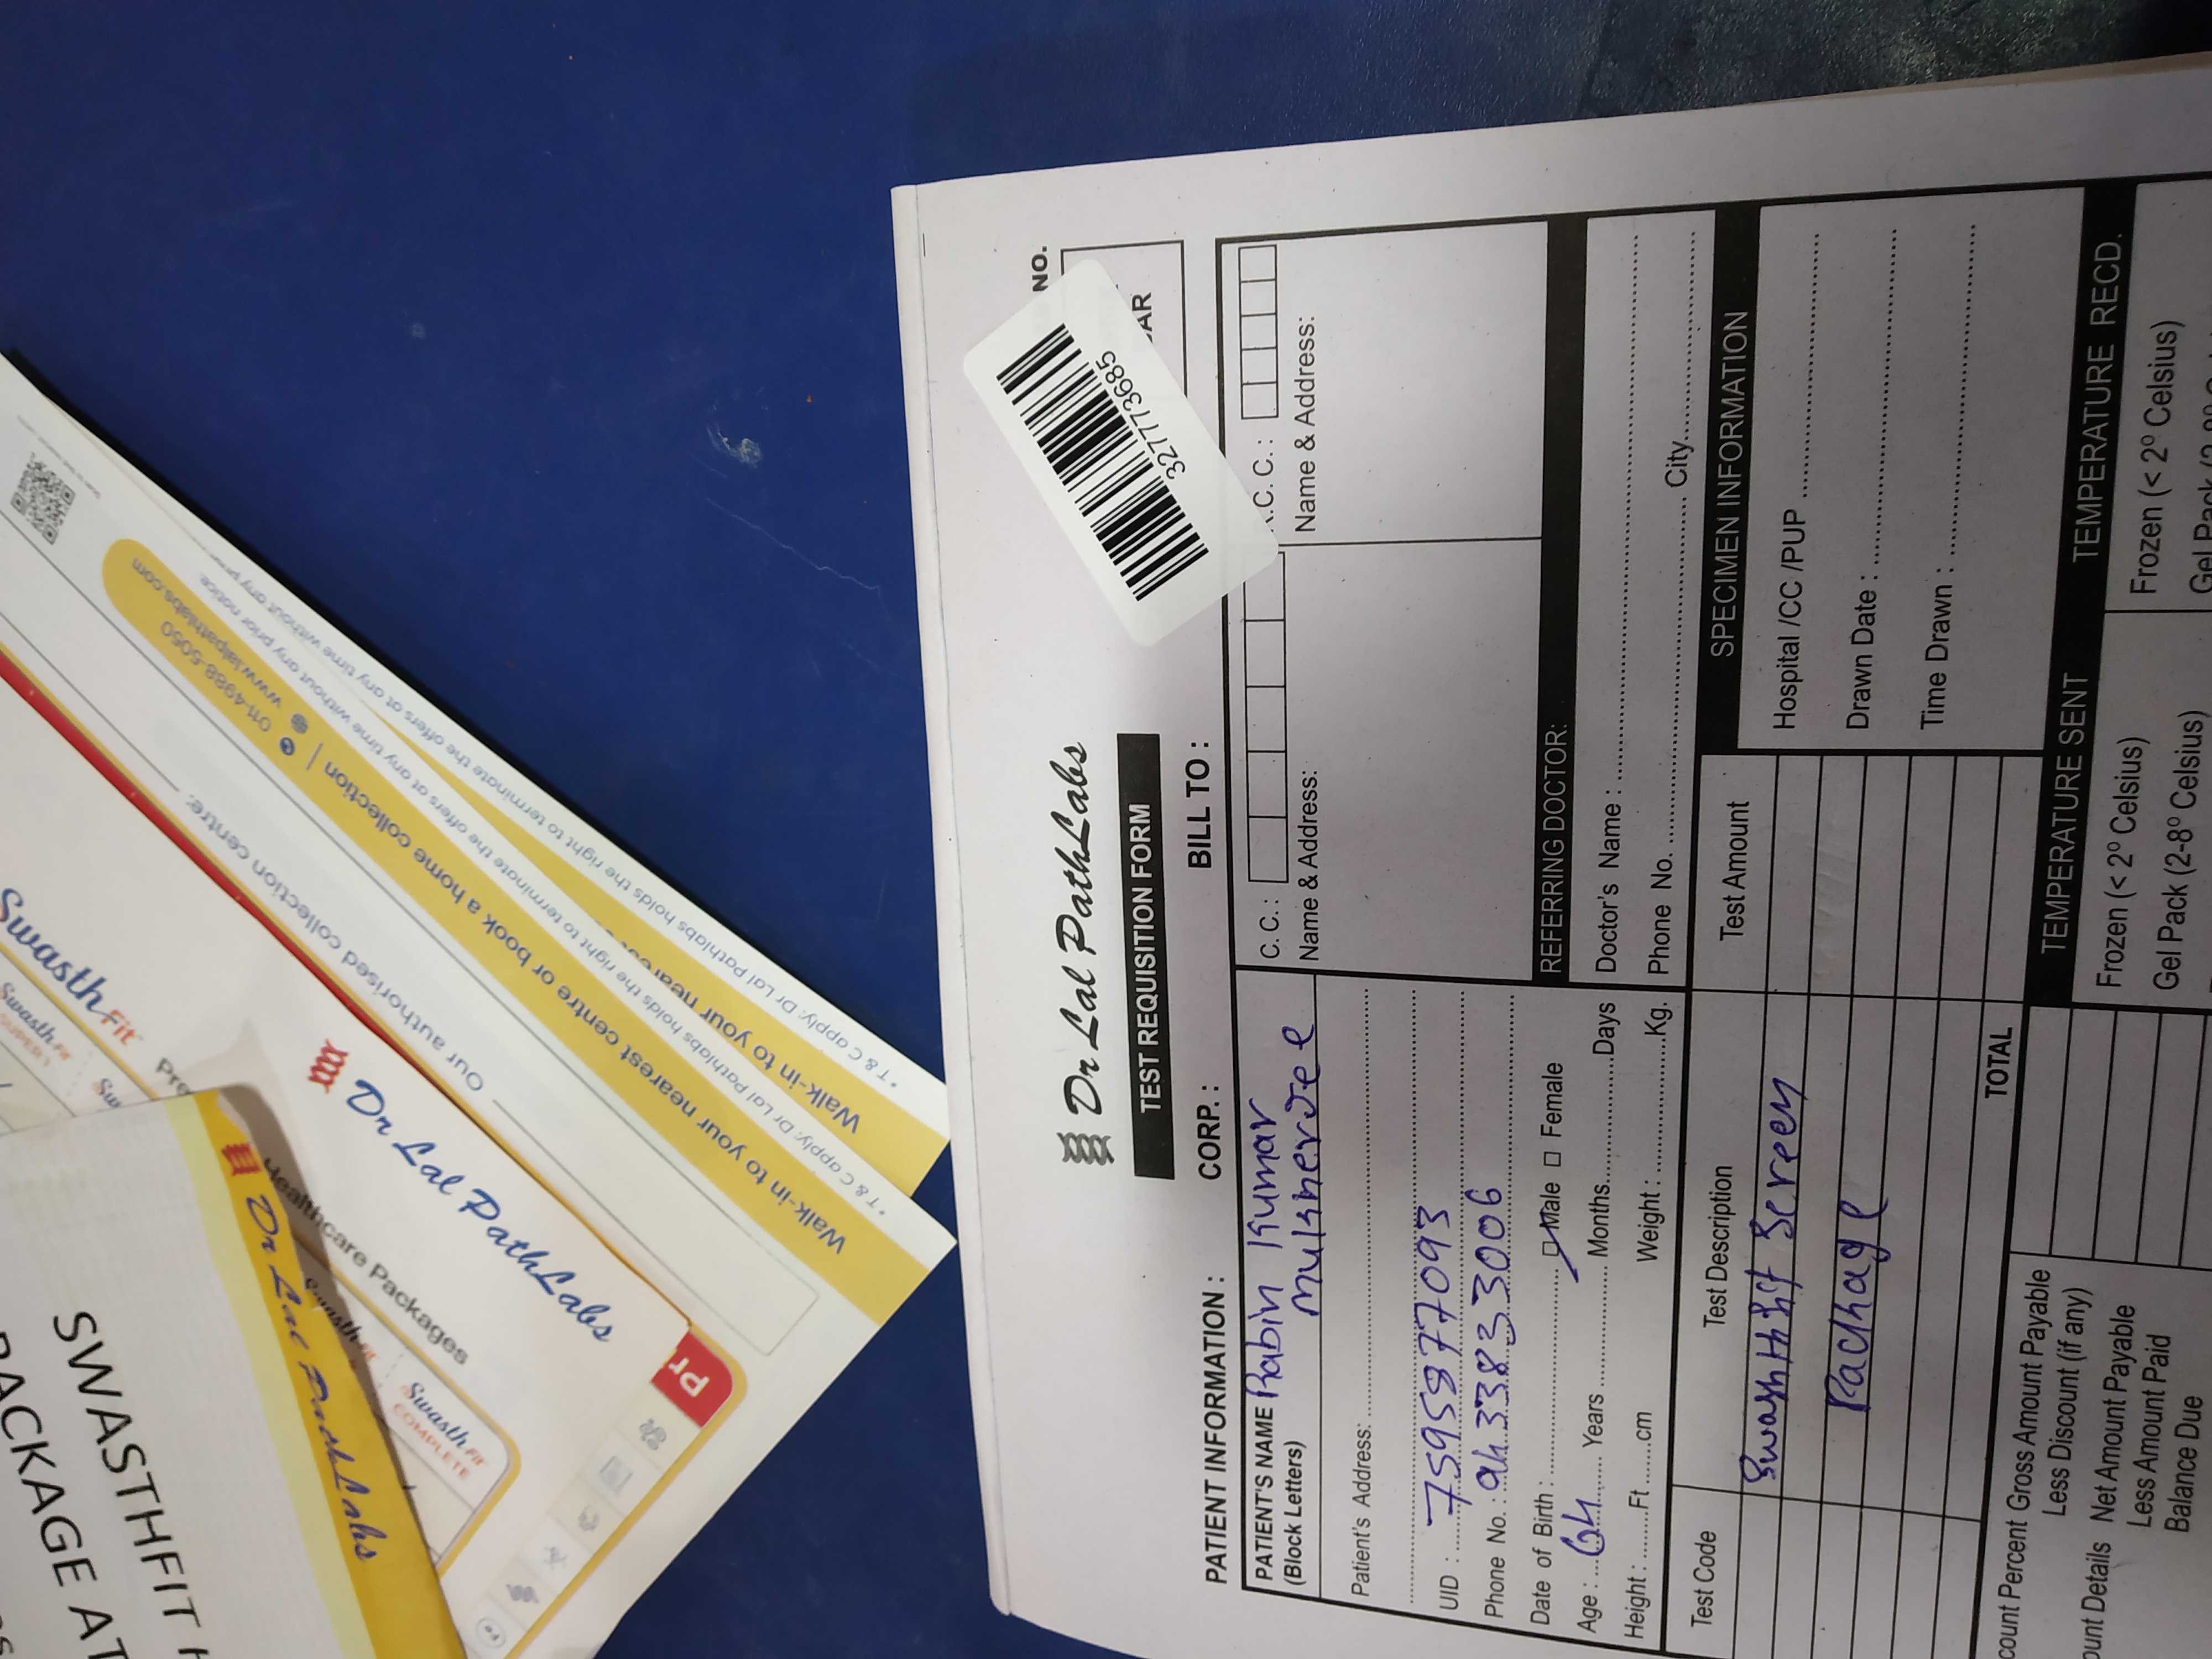 SWASTHFIT
PACKAGE AT
Dr Lal PathLabs
Swasth Fit
SUPER 1
Swasth Fit
Healthcare Packages
Swasth Fit
COMPLETE
Dr Lal PathLabs
Our authorised collection centre:
Walk-in to your nearest centre or book a home collection | 011-4988-5050
www.lalpathlabs.com
* T & C apply: Dr Lal Pathlabs holds the right to terminate the offers at any time without any prior notice.
Walk-in to your
* T & C apply: Dr Lal Pathlabs holds the right to terminate the offers at any time without any
Dr Lal PathLabs
TEST REQUISITION FORM
NO.
327773685
PATIENT INFORMATION : CORP. : BILL TO :
PATIENT'S NAME Rabin Kumar
(Block Letters) Mukherjee
C. C. : C. C. :
Name & Address: Name & Address:
Patient's Address:
UID : 7595877093
Phone No. : 9433833006
Date of Birth : Male Female
Age : 64 Years Months Days
Height : Ft cm Weight : Kg.
REFERRING DOCTOR:
Doctor's Name :
Phone No. City
Test Code Test Description Test Amount
Swashthfit Screen
Package
TOTAL
SPECIMEN INFORMATION
Hospital /CC /PUP
Drawn Date :
Time Drawn :
count Percent Gross Amount Payable
Less Discount (if any)
ount Details Net Amount Payable
Less Amount Paid
Balance Due
TEMPERATURE SENT TEMPERATURE RECD.
Frozen (< 2º Celsius) Frozen (< 2º Celsius)
Gel Pack (2-8º Celsius)